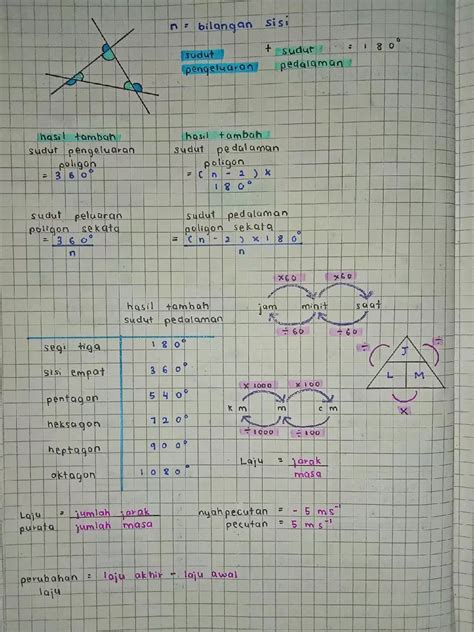 n = bilangan sisi
sudut pengeluaran + sudut pedalaman = 180°
hasil tambah
sudut pengeluaran
poligon
= 360°
hasil tambah
sudut pedalaman
poligon
= (n - 2) x
180°
sudut peluaran
poligon sekata
= 360°
n
sudut pedalaman
poligon sekata
= (n - 2) x 180°
n
hasil tambah
sudut pedalaman
segi tiga 180°
sisi empat 360°
pentagon 540°
heksagon 720°
heptagon 900°
oktagon 1080°
x60 x60
jam minit saat
÷60 ÷60
x1000 x100
km m cm
÷1000 ÷100
÷ J ÷
L M
x
Laju = jarak
masa
Laju purata = jumlah jarak
jumlah masa
nyahpecutan = - 5 ms⁻¹
pecutan = 5 ms⁻¹
perubahan laju = laju akhir - laju awal